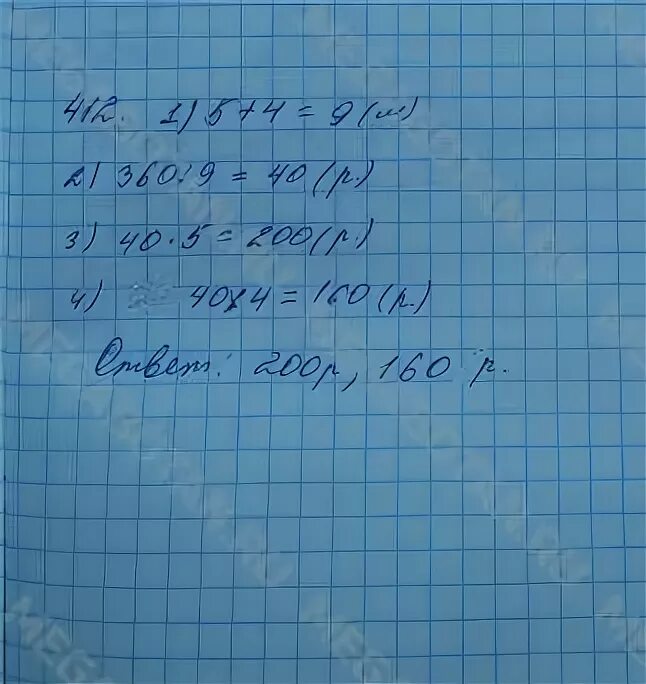 412. 1) 5+4 = 9 (м)
2) 360:9 = 40 (р.)
3) 40·5 = 200 (р.)
4) 40×4 = 160 (р.)
Ответ: 200р, 160 р.